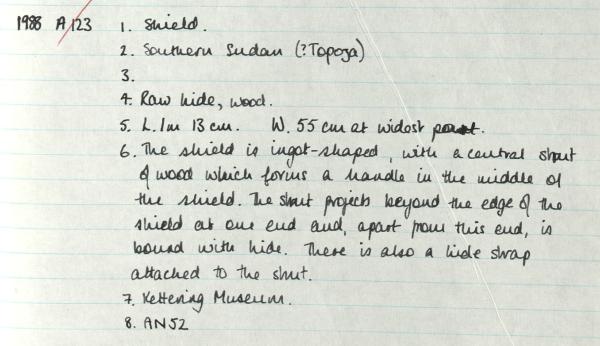 1988 A 123 1. Shield.
2. Southern Sudan (?Topoza)
3.
4. Raw hide, wood.
5. L. 1m 13 cm. W. 55 cm at widest point.
6. The shield is ingot-shaped, with a central strut
of wood which forms a handle in the middle of
the shield. The strut projects beyond the edge of the
shield at one end and, apart from this end, is
bound with hide. There is also a hide strap
attached to the strut.
7. Kettering Museum.
8. AN52